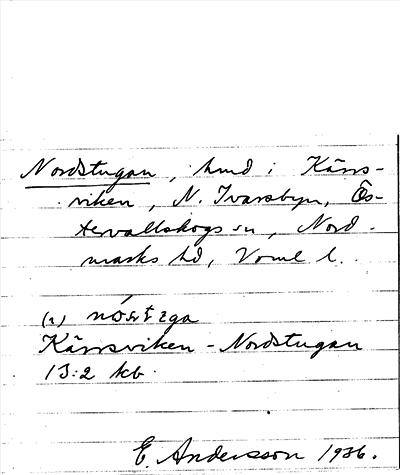 Nordstugan, hmd i Kärrs-
viken, N. Ivarsbyn, Ös-
tervallskogs sn, Nord-
marks hd, Verml l.
(2)
Kärrsviken - Nordstugan
13:2 kb.
E. Andersson 1936.